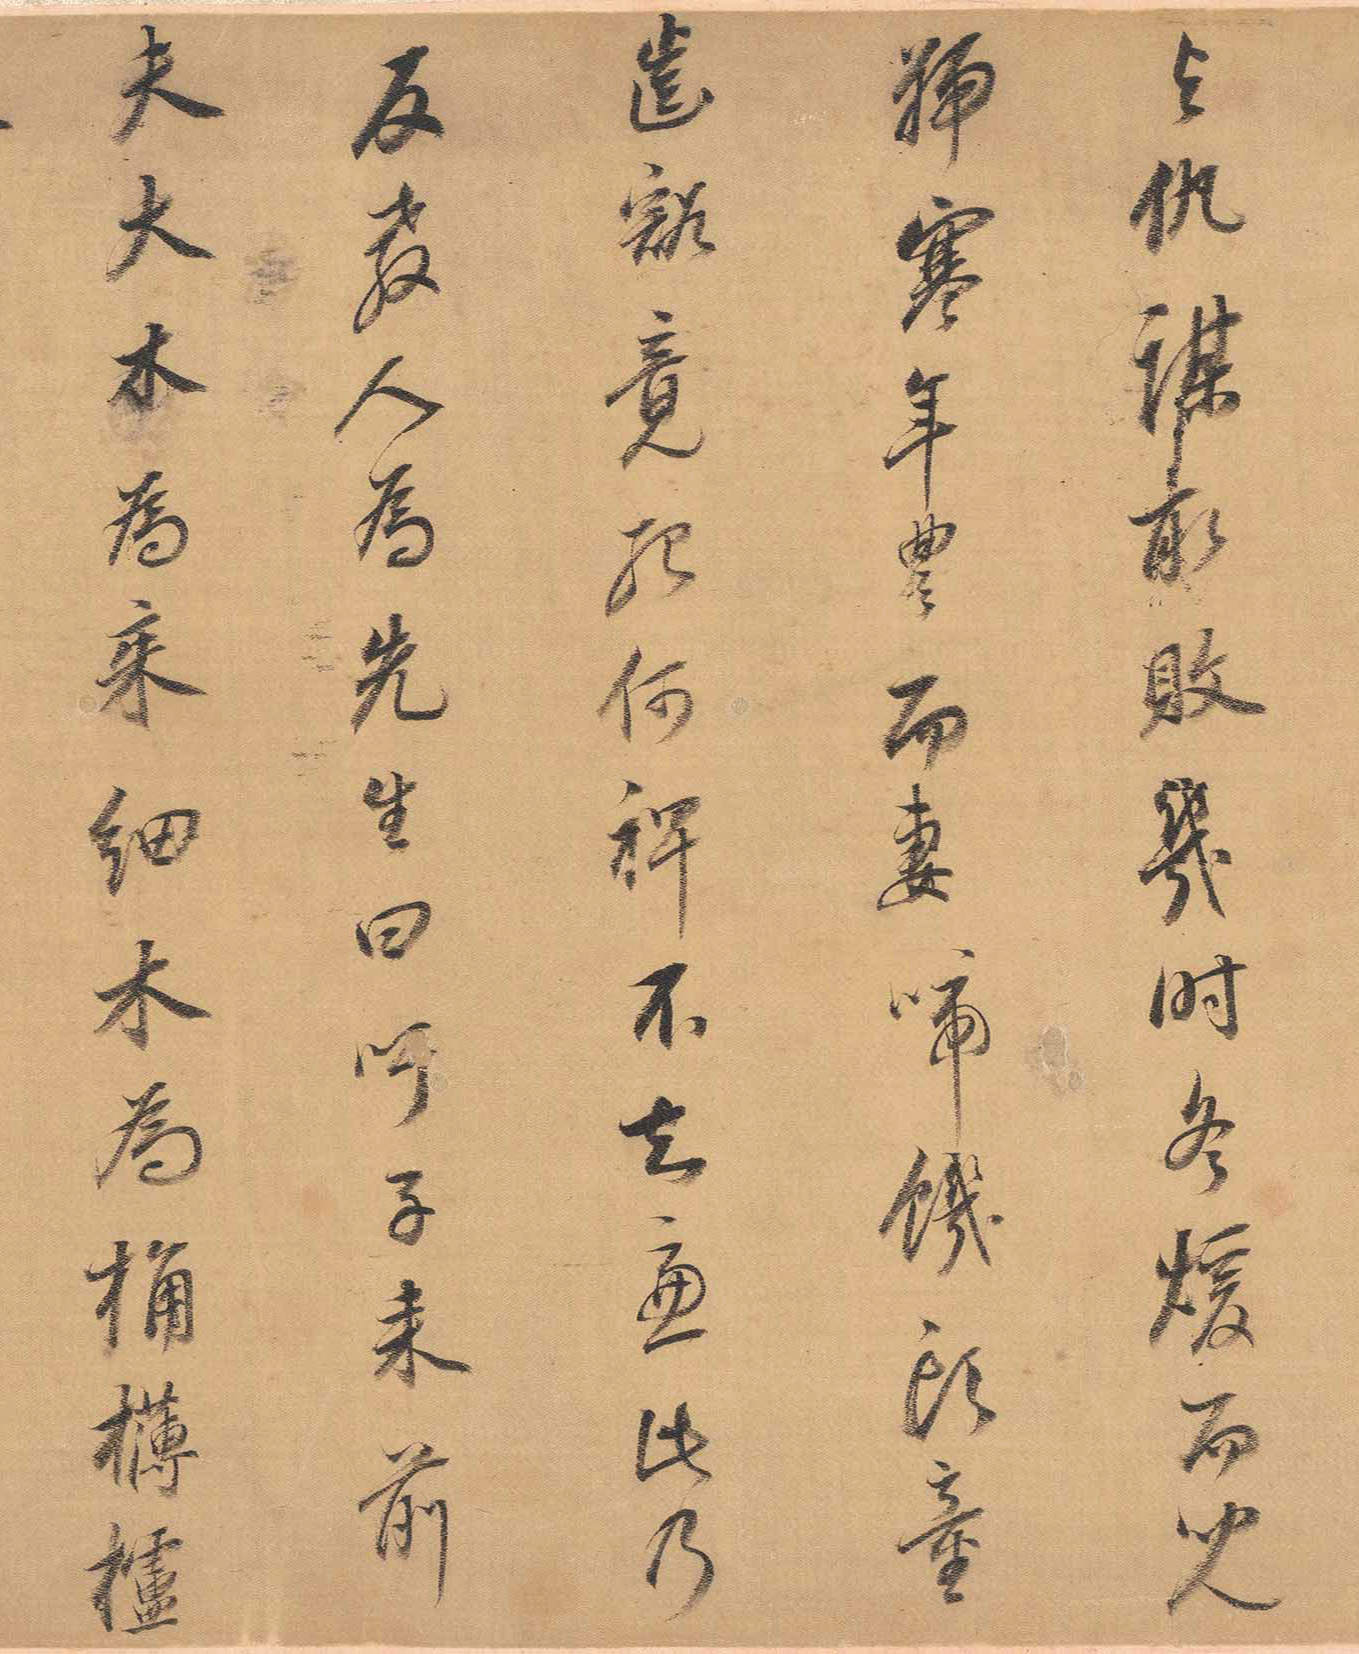 与仇謀取敗幾時冬煖而兒
號寒年豐而妻啼饑頭童
齒豁竟死何裨不知慮此乃
反教人為先生曰吁子來前
夫大木為杗細木為桷欂櫨